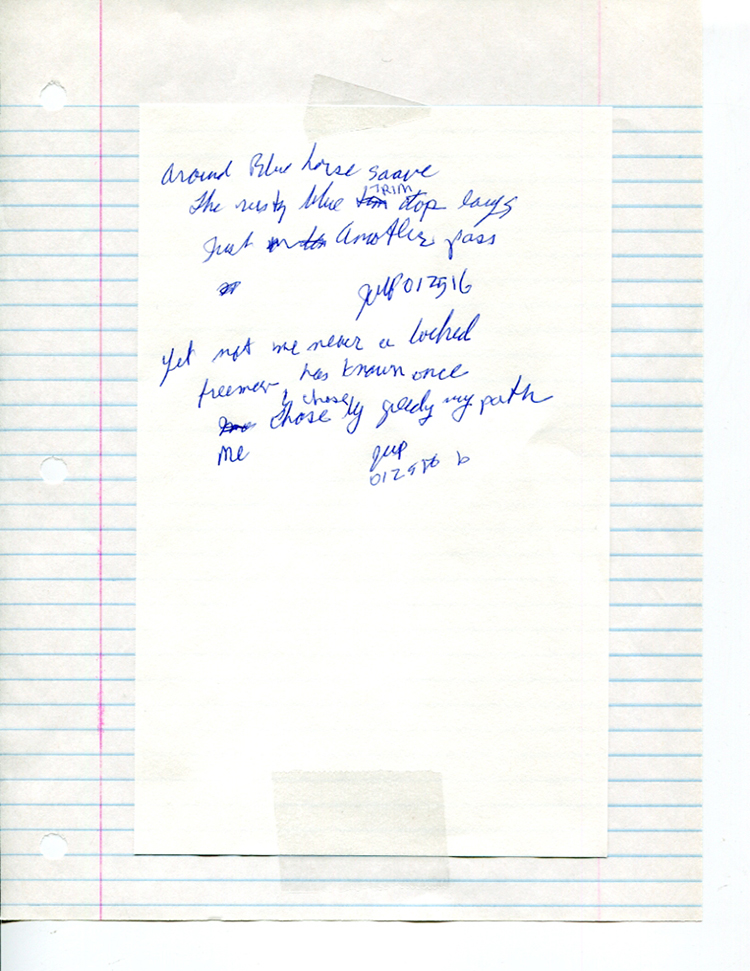 around Blue horse Square
The rusty blue TRIM stop says
Just another pass
012516
yet not me never a locked
freeman has known once
I chose
those my path
me
b